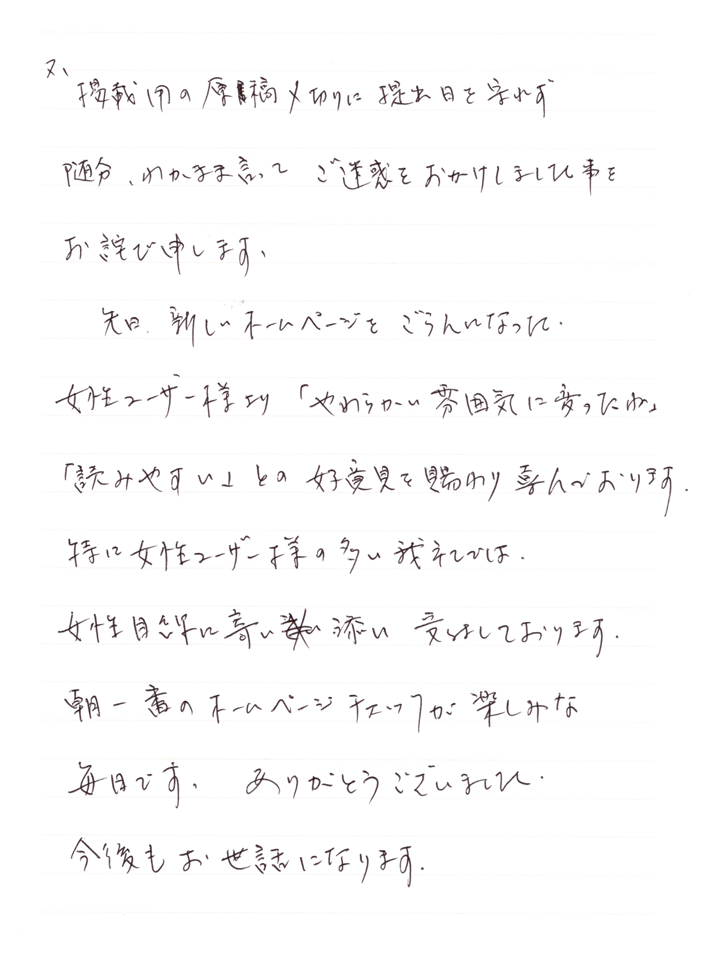 又、
掲載用の原稿〆切りに提出日を守れず
随分、わがまま言って ご迷惑をおかけしました事を
お詫び申します、
先日、新しいホームページをごらんになった、
女性ユーザー様より「やわらかい雰囲気に変ったね」
「読みやすい」との好意見を賜わり喜んでおります.
特に女性ユーザー様の多い我社では、
女性目線に寄い添い しております.
朝一番のホームページチェックが楽しみな
毎日です、 ありがとうございました.
今後もお世話になります.